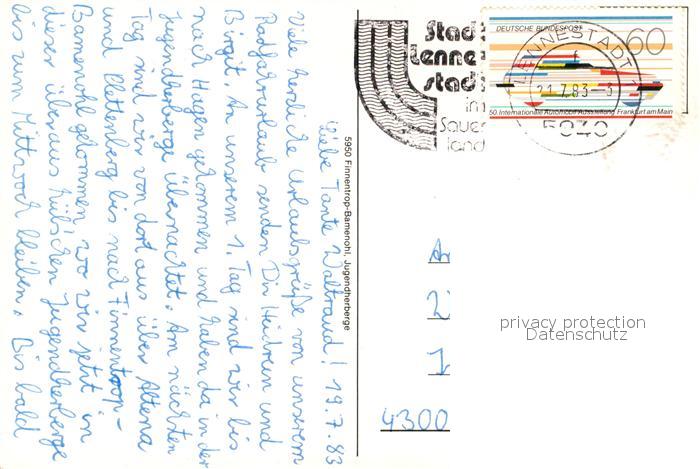 Liebe Tante Waltraud! 19.7.83
Viele herzliche Urlaubsgrüße von unserem
Radfahrurlaub senden Dir Heidrun und
Birgit. An unserem 1. Tag sind wir bis
nach Hagen gekommen und haben da in der
Jugendherberge übernachtet. Am nächsten
Tag sind wir von dort aus über Altena
und Plettenberg bis nach Finnentrop-
Bamenohl gekommen, wo wir jetzt in
dieser überaus hübschen Jugendherberge
bis zum Mittwoch bleiben. Bis bald
5950 Finnentrop-Bamenohl, Jugendherberge
Stadt
Lenne
stadt
im
Sauer
land
DEUTSCHE BUNDESPOST
60
LENNESTADT 1
21.7.83-
5940
50. Internationale Automobil-Ausstellung Frankfurt am Main
An
4300
privacy protection
Datenschutz